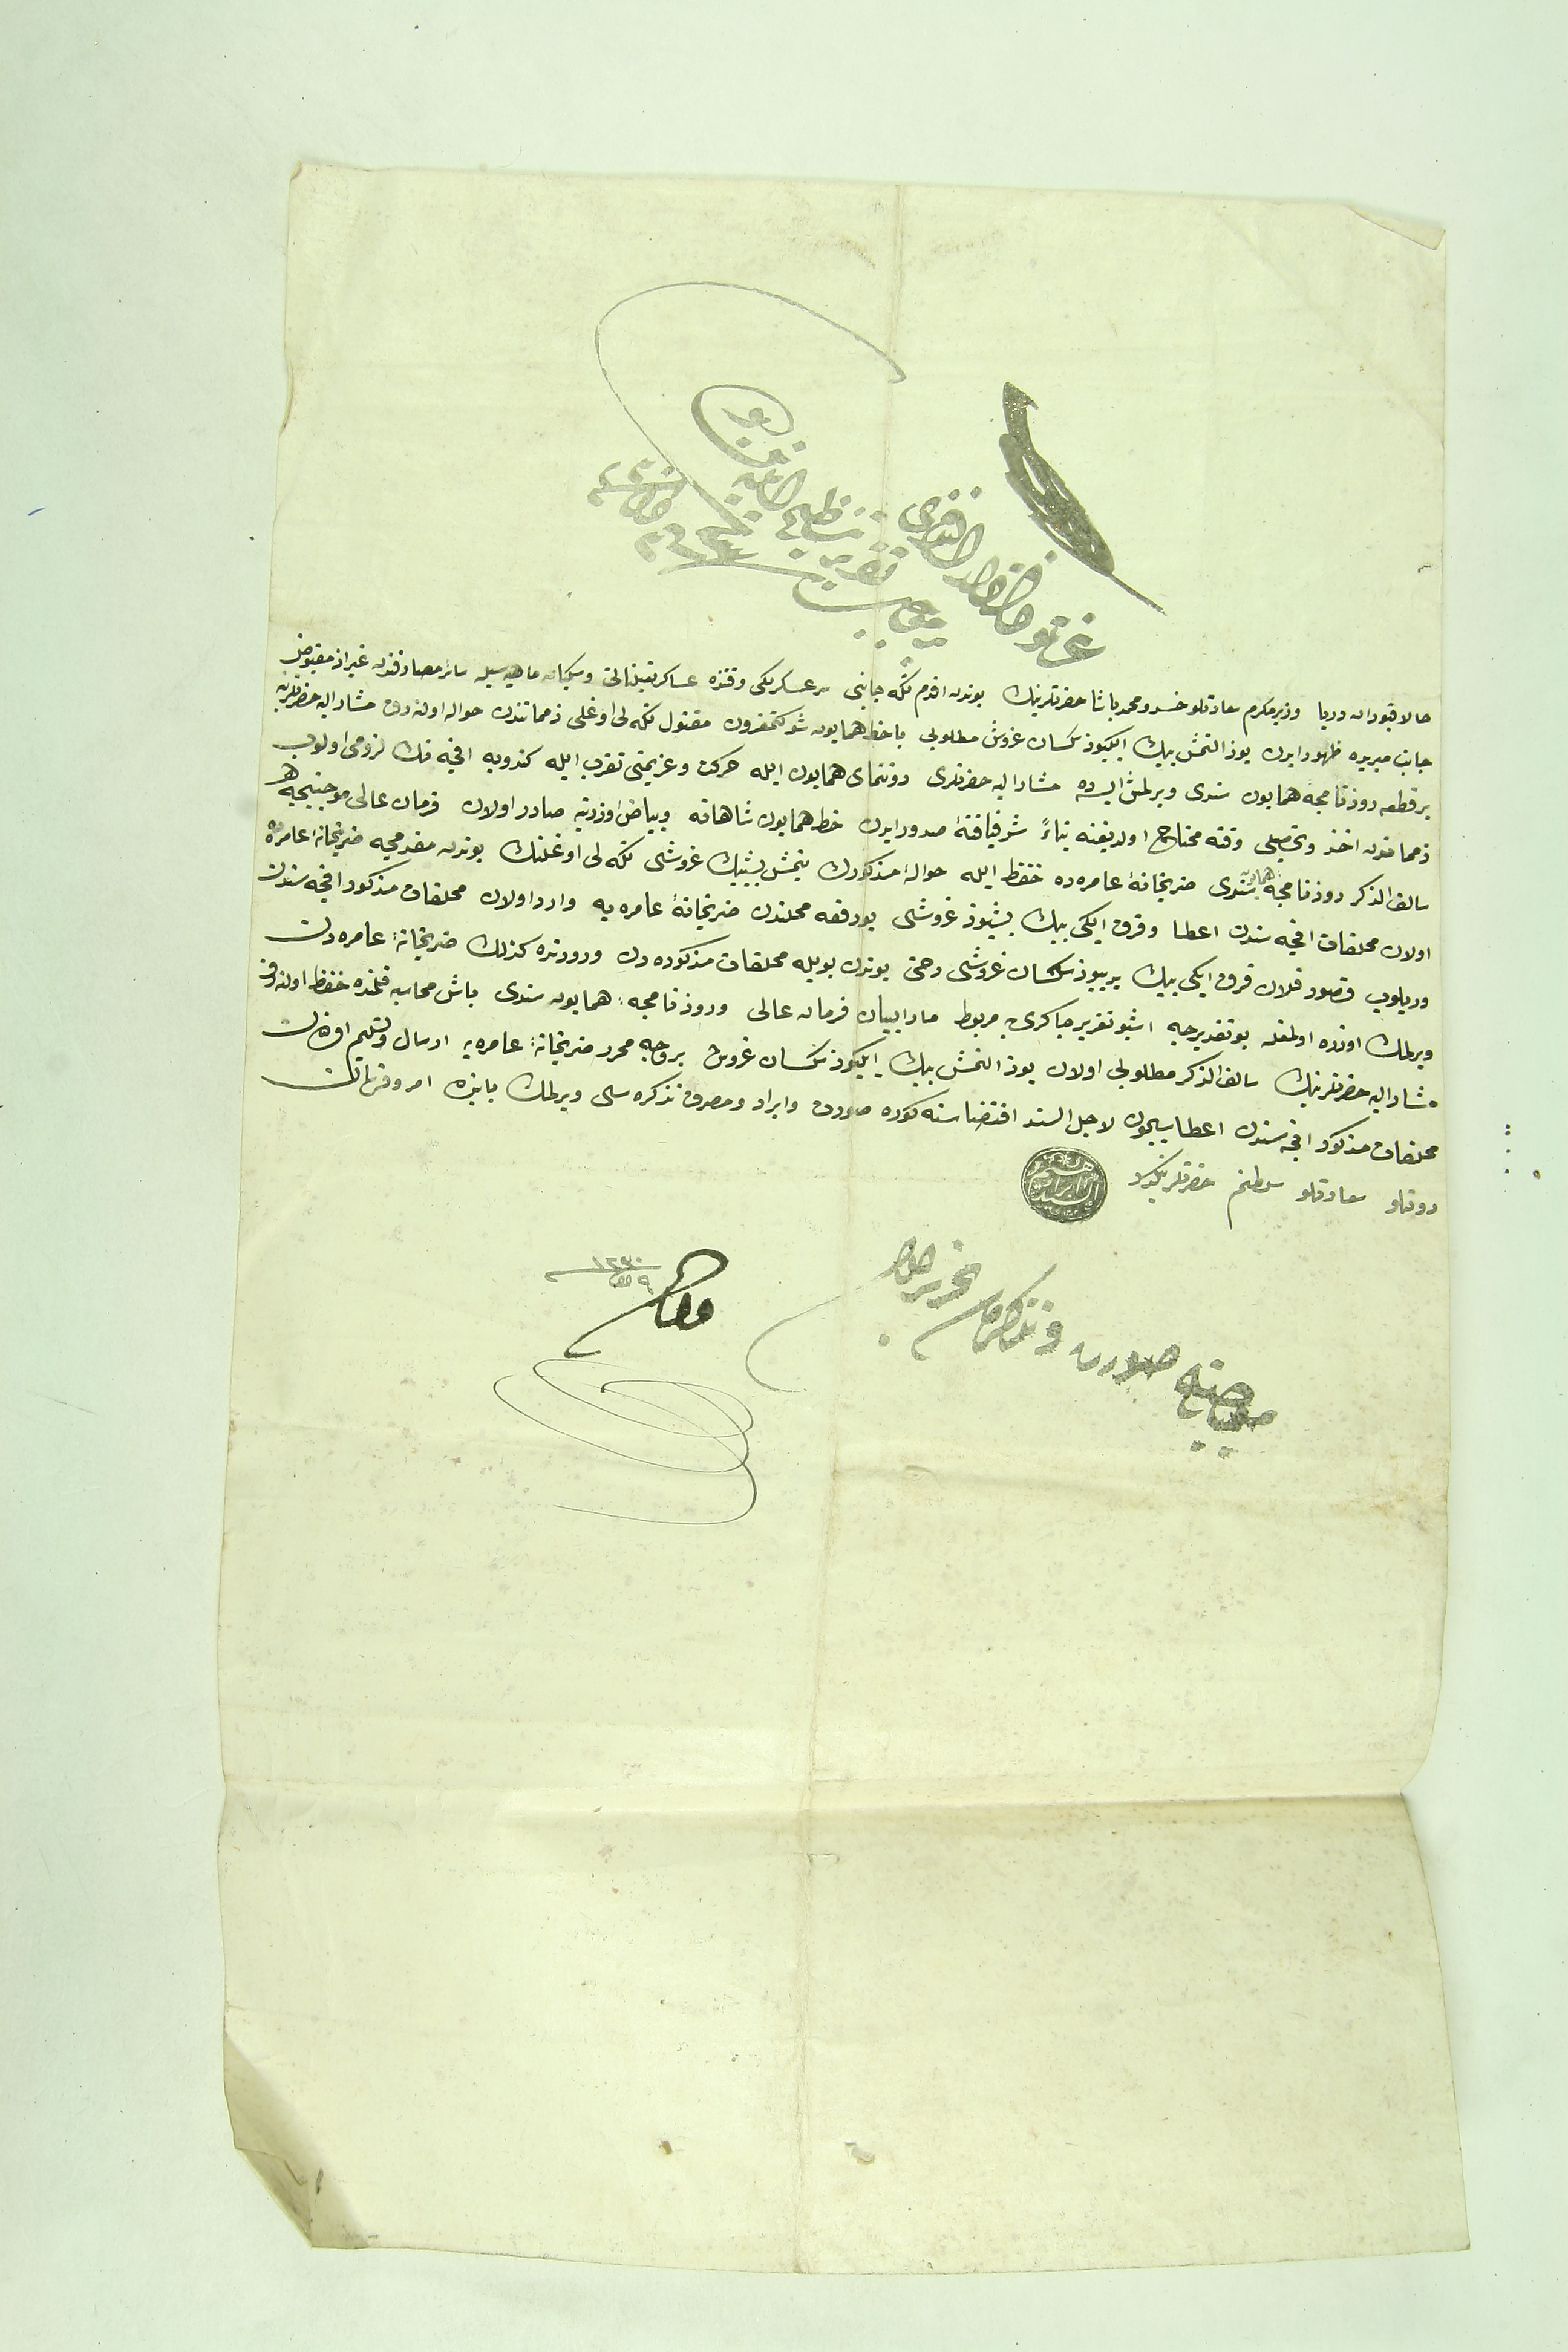 عزتلو دفتردار افندی
حالا قپودان دریا وزیر مکرم سعادتلو خسرو محمد پاشا حضرتلرینك بوندن اقدم تکه جانبی سرعسکرلکی وقتنده عساکر تعییناتی وسکبان ماهیه سیله سائر مصارفندن غیر از مقبوض
جانب میریده ظهور ایدن یوز التمش بیك ایکیوز سکسان غروش مطلوبی باخط همایون شوکتمقرون مقتول تکه لی اوغلی ذمماتندن حواله اولنه رق مشار الیه حضرتلرینه
بر قطعه روزنامجه همایون سندی ویرلمش ایسه ده مشار الیه حضرتلری دوننمای همایون ایله حرکت وعزیمتی تقرب ایله کندویه اقچه نك لزومی اولوب
ذمماتدن اخذ وتحصیلی وقته محتاج اولدیغنه بناءً شرفیافتهٔ صدور ایدن خط همایون شاهانه وبیاض اوزرینه صادر اولان فرمان عالی موجبنجه
سالف الذکر روزنامجه همایون سندی ضربخانهٔ عامره ده حفظ ایله حوالهٔ مذکوردن یتمش بشبیك غروشی تکه لی اوغلنك بوندن مقدمجه ضربخانهٔ عامره ده
اولان مخلفات اقچه سندن اعطا وقرق ایکی بیك بشیوز غروشی بو دفعه محلندن ضربخانهٔ عامره یه وارد اولان مخلفات مذکور اقچه سندن
ویریلوب قصور قلان قرق ایکی بیك یدییوز سکسان غروشی دخی بوندن بویله مخلفات مذکوره دن ورودنده کذلك ضربخانهٔ عامره دن
ویرلمك اوزره اولمغله بو تقدیرجه اشبو تقریر چاکری یه مربوط مار البیان فرمان عالی وروزنامجهٔ همایون سندی باش محاسبه قلمنده حفظ اولنه رق
مشار الیه حضرتلرینك سالف الذکر مطلوبی اولان یوز التمش بیك ایکیوز سکسان غروش بر وجه محرر ضربخانهٔ عامره یه ارسال وتسلیم اولنان
مخلفات مذکور اقچه سندن اعطا ایچون لاجل السند اقتضاسنه کوره صورت وایراد ومصرف تذکره سی ویرلمك بابنده امر وفرمان
دولتلو سعادتلو سلطانم حضرتلرینکدر
صورت وتذکره
١٢٣٠
٩